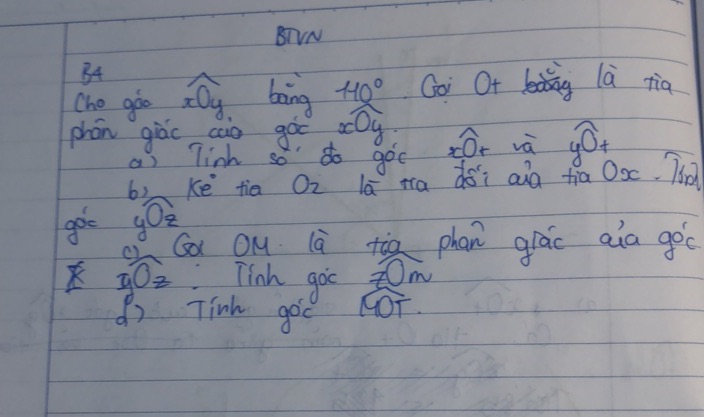 BTVN
B4
Cho góc xOy bằng 110°. Gọi Ot là tia
phân giác của góc xOy.
a) Tính số đo góc xOt và yOt
b) Kẻ tia Oz là tia đối của tia Ox. Tính
góc yOz
c) Gọi OM là tia phân giác của góc
yOz. Tính góc zOm
d) Tính góc MOT.